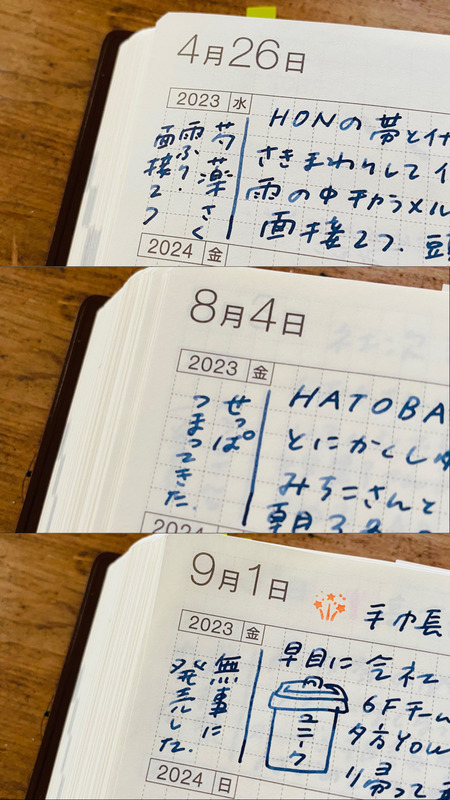 4月26日
2023 水
芍薬さく
雨ふり.
面接2つ
HONの帯と
さきまわりして
雨の中
面接2つ. 頭
2024 金
8月4日
2023 金
せっぱ
つまってきた.
HATOBA
とにかくし
みちこさんと
2024
9月1日
手巾長
2023 金
無事に
発売した.
早目に 会社
6Fチーム
ユニーク
夕方YOU
帰って
2024 日